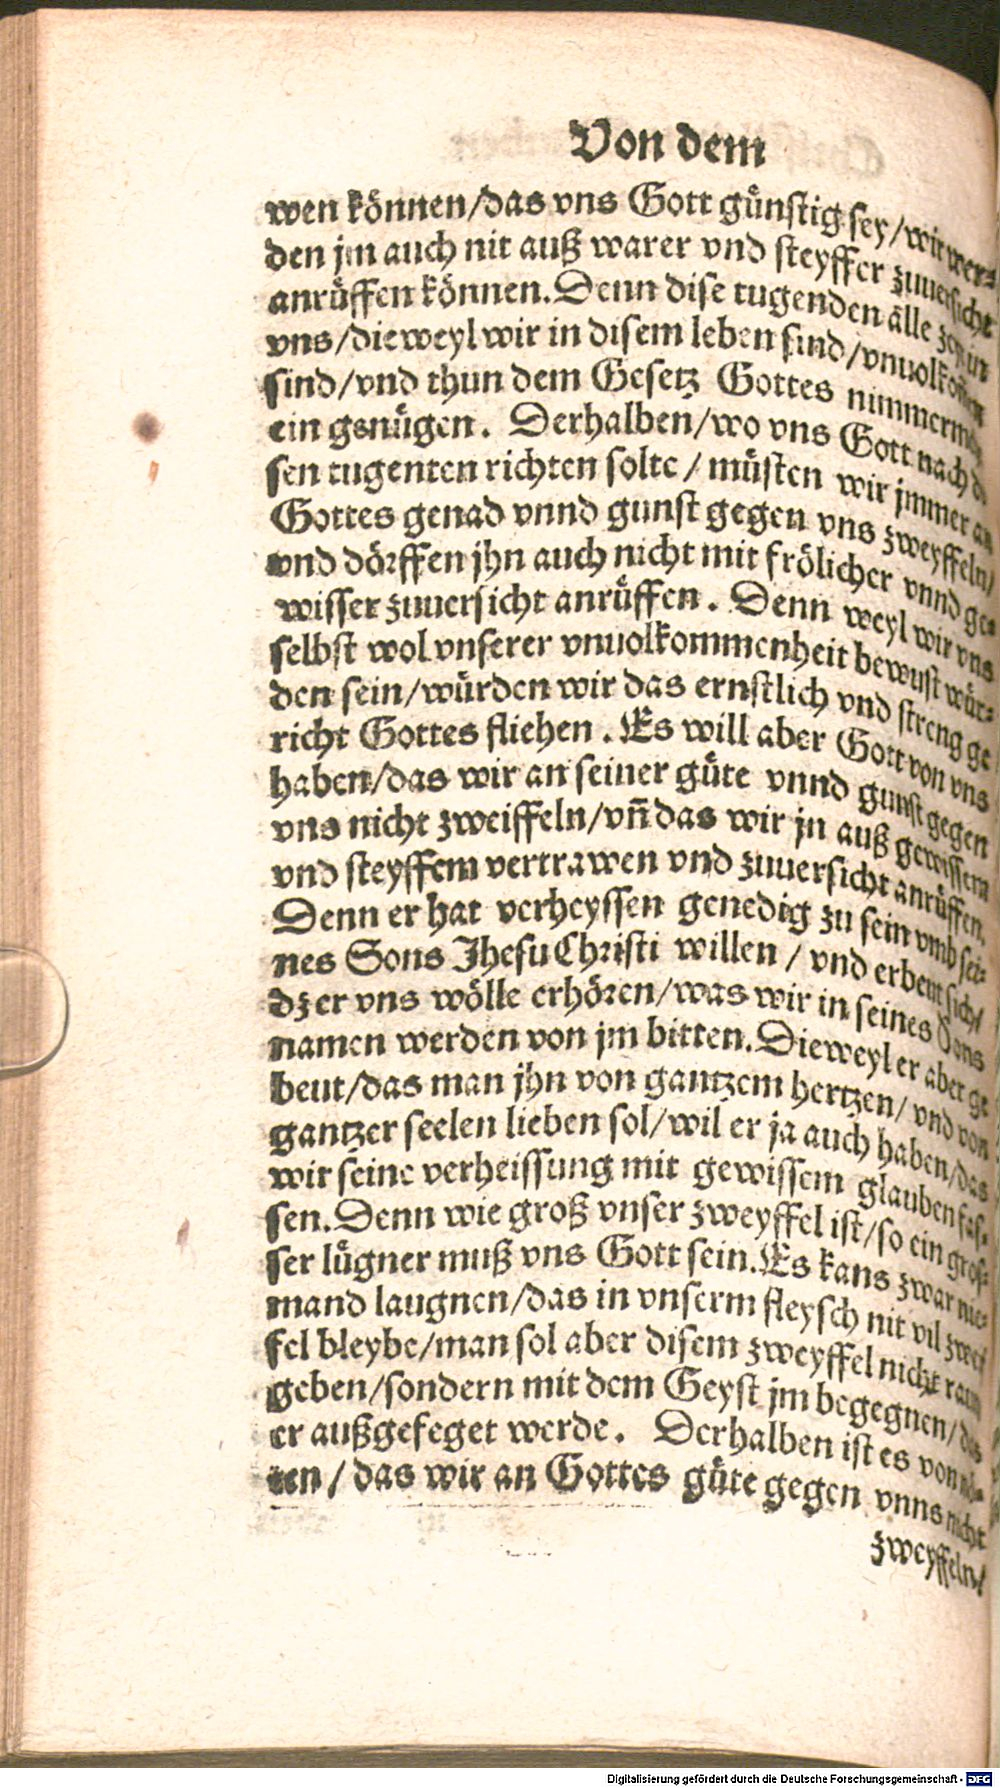 Von dem
wen können/das vns Gott günstig sey/wir wer⸗
den jm auch nit auß warer vnd steyffer zuuersicht
anrüffen können. Denn dise tugenden alle zeyt in
vns/dieweyl wir in disem leben sind/vnuolkomen
sind/vnd thun dem Gesetz Gottes nimmermehr
ein genügen. Derhalben/wo vns Gott nach di
sen tugenten richten solte/müsten wir jmmer an
Gottes genad vnnd gunst gegen vns zweyffeln/
vnd dörffen jhn auch nicht mit frölicher vnnd ge⸗
wisser zuuersicht anrüffen. Denn weyl wir vns
selbst wol vnserer vnuolkommenheit bewust wür⸗
den sein/würden wir das ernstlich vnd streng ge
richt Gottes fliehen. Es will aber Gott von vns
haben/das wir an seiner güte vnnd gunst gegen
vns nicht zweiffeln/vñ das wir jn auß gewissem
vnd steyffem vertrawen vnd zuuersicht anrüffen.
Denn er hat verheyssen genedig zu sein vmb sei⸗
nes Sons Jhesu Christi willen/vnd erbeut sich/
dz er vns wölle erhören/was wir in seines Sons
namen werden von jm bitten. Dieweyl er aber ge
beut/das man jhn von gantzem hertzen/vnd von
gantzer seelen lieben sol/wil er ja auch haben/das
wir seine verheissung mit gewissem glauben fas⸗
sen. Denn wie groß vnser zweyffel ist/so ein gros⸗
ser lügner muß vns Gott sein. Es kans zwar nie⸗
mand laugnen/das in vnserm fleysch nit vil zweif
fel bleybe/man sol aber disem zweyffel nicht raum
geben/sondern mit dem Geyst jm begegnen/das
er außgefeget werde. Derhalben ist es von nö⸗
ten/das wir an Gottes güte gegen vnns nicht
zweyffeln/
Digitalisierung gefördert durch die Deutsche Forschungsgemeinschaft - DFG